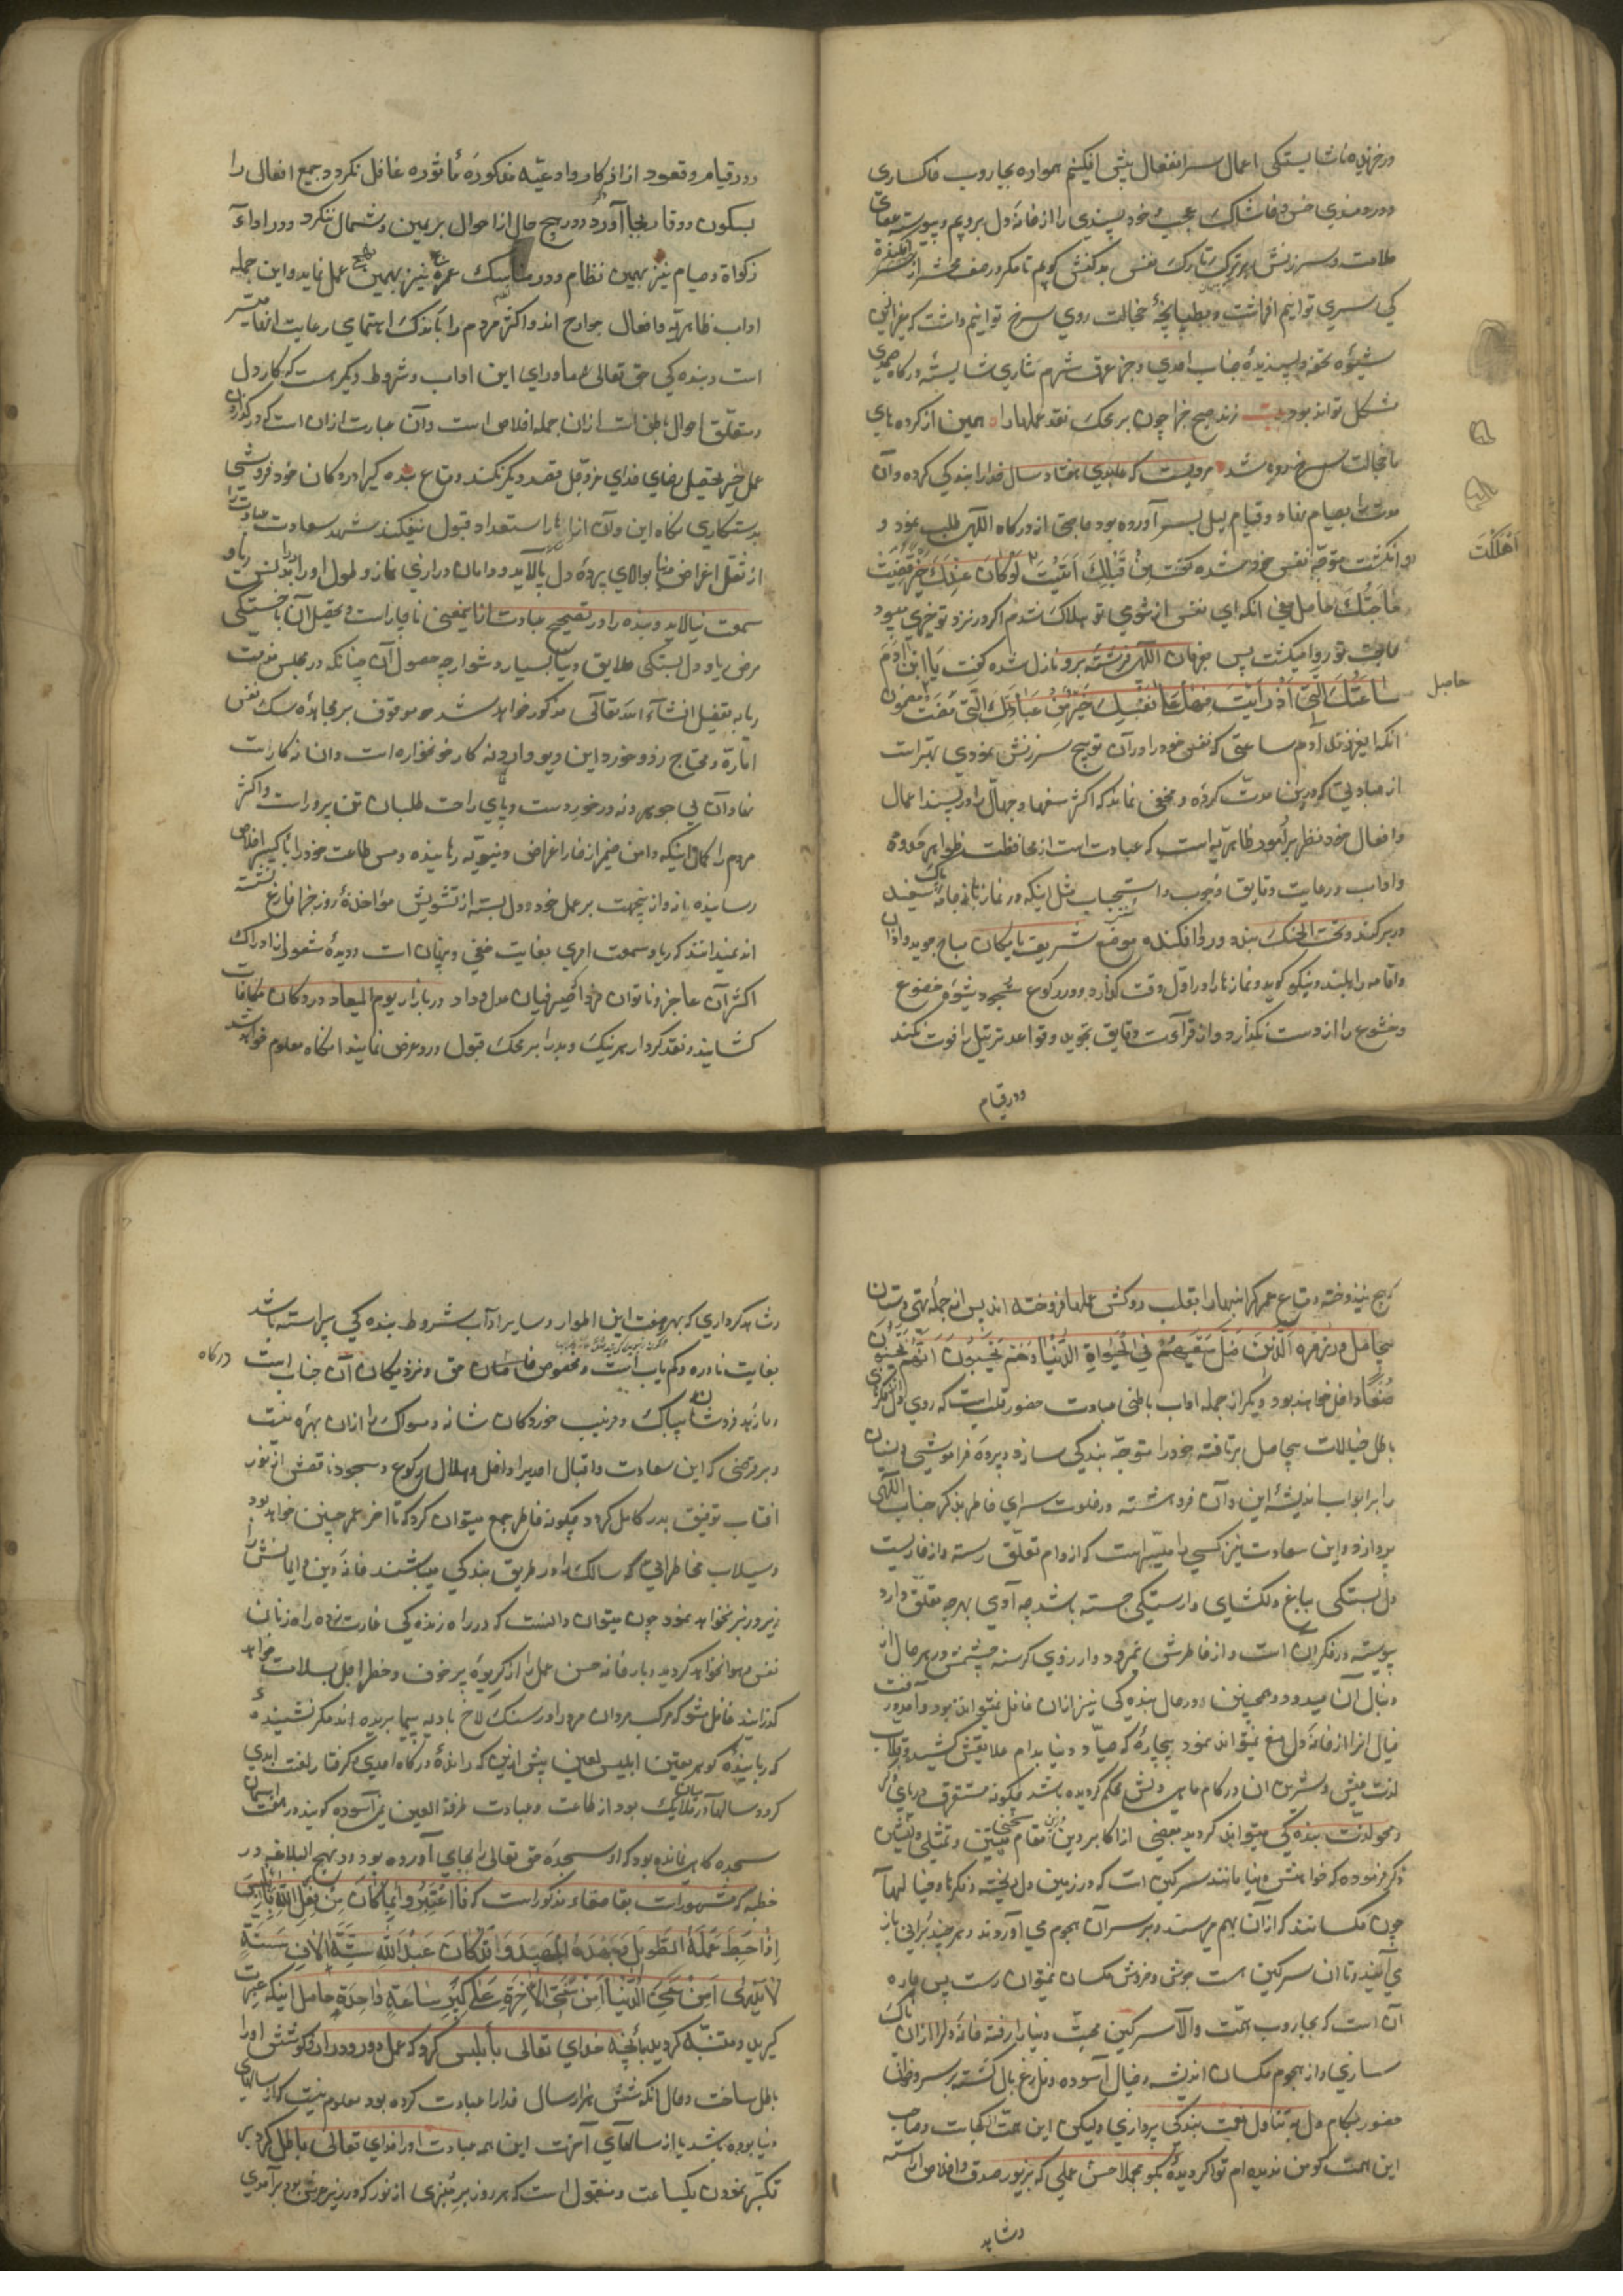 در خزینه ناشایستگی اعمال سر انفعال پیش افکنیم همواره بجاروب خاکساری
و دردمندی خس و خاشاک عجب و خود پسندی را از خانه دل بروبیم و پیوسته عصای
ملامت و سرزنش بر ترک تارک نفس بدکنش کوبیم تا مگر در صف محشر از
کی سری توانیم افراشت و بطپانچهٔ خجالت روی سرخ توانیم داشت که
شیوه تحفه پسندیدهٔ جناب احدی و جز عرق شرم نثاری شایسته درگاه صمدی
مشکل تواند بود بیت زند صبح جزا چون بر محک نقد عملها را همین از کرده های
با خجالت سرخ رو شد مرویست که عابدی هفتاد سال خدا را بندگی کرده و آن
مدت را بصیام نهار و قیام لیل بسر آورده بود حاجتی از درگاه الهی طلب نمود و
روا نگشت متوجه نفس خود شده گفت مِنْ قِبَلِكَ اُتیتُ لَوْ كَانَ عِنْدَكَ خَیْرٌ قُضِیَت
حَاجَتُكَ حاصل معنی آنکه ای نفس از شومی تو هلاک شدم اگر در نزد تو خیری میبود
حاجت تو روا میگشت پس بفرمان الهی فرشته برو نازل شده گفت یَا ابْنَ آدَمَ
سَاعَتُكَ الَّتِی اَزْرَأتَ فِیهَا عَلَی نَفْسِكَ خَیْرٌ مِنْ عِبَادَتِكَ الَّتِی مَضَت مضمون
آنکه ای فرزند آدم ساعتی که نفس خود را در آن توبیخ سرزنش نمودی بهتر است
از عبادتی که درین مدت کرده و مخفی نماند که اکثر سفها و جهال را در پسند اعمال
و افعال خود نظر بر امور ظاهریه است که عبارت است از محافظت ظواهر حدود
و آداب و رعایت دقایق وجوب و استحباب مثل اینکه در نماز جامه پاک سفید
در بر کند و تحت الحنک بند و ردا افکنده موضع شریف یا مکان مباح جوید و اذان
و اقامه را بلند و نیکو گوید و نماز را در اول وقت گذارد و در رکوع و سجود شیوه خضوع
و خشوع را از دست نگذارد و از قرائت دقایق تجوید و قواعد ترتیل را فوت نکند
و در قیام
اَهْلَكْتَ
حاصل
و در قیام و قعود از اذکار و ادعیه مذکوره مأثوره غافل نگردد و جمیع افعال را
بسکون و وقار بجا آورد و در هیچ حال از احوال بر یمین و شمال ننگرد و در اداء
زکواة و صیام نیز بهمین نظام و در مناسک حج و عمره نیز بهمین نهج عمل نماید و این جمله
آداب ظاهریه و افعال جوارح اند و اکثر مردم را باندک اهتمامی رعایت آنها میسر
است و بندگی حق تعالی را ماورای این آداب و شروط دیگر هست که کار دل
و متعلق باحوال باطن است از آن جمله اخلاص است و آن عبارت از آن است که در کردن
عمل خیر بتحصیل رضای خدای عزوجل قصد دیگر نکند و متاع بندگی را در دکان خود فروشی
بدستکاری نگاه این و آن از استعداد قبول نیفکند شهد سعادت عبادت را
از ثفل اغراض دنیا بوالای پردهٔ دل پالاید و دامان درازی نماز و طول اوراد را بلوث ریا و
سمعت نیالاید و بنده را در تصحیح عبادت از این معنی ناچار است و تحصیل آن با خستگی
مرض ریا و دل بستگی علایق دنیا بسیار دشوار چه حصول آن چنانکه در مجلس مذمت
ریا به تفصیل انشاءالله تعالی مذکور خواهد شد موقوف بر مجاهده سگ نفس
اماره و محتاج زد و خورد این دیو وارونه کار خونخواره است و آن نه کار است
نهادان بی جوهر و نه در خور دست و پای راحت طلبان تن پرور است و اکثر
مردم را گمان اینکه دامن ضمیر از خار اغراض دنیویه رهانیده و مس طاعت خود را باکسیر اخلاص
رسانیده باز از این جهت بر عمل خود دل بسته از تشویش مؤاخذهٔ روز جزا فارغ نشسته
اند نمیدانند که ریا و سمعت امری بغایت مخفی و پنهان است و دیدهٔ شعور از ادراک
اکثر آن عاجز و ناتوان فردا که صیرفیان عدل و داد در بازار یوم المیعاد دکان مکافات
گشایند و نقد کردار هر نیک و بد را بر محک قبول و رد عرض نمایند آنگاه معلوم خواهد شد
که هیچ نیندوخته و متاع عمر گرانبها را بقلب روکش عملها فروخته اند پس از جمله تهی دستان
بیحاصل و در زمره اَلَّذینَ ضَلَّ سَعْیُهُمْ فِی الْحَیٰوةِ الدُّنْیَا وَ هُمْ یَحْسَبُونَ اَنَّهُمْ یُحْسِنُونَ
صُنْعًا داخل خواهند بود و دیگر از جمله آداب باطنی عبادت حضور قلب است که روی دل از فکرهای
باطل و خیالات بیحاصل برتافته خود را متوجه بندگی سازد و پرده فراموشی و نسیان
را بر ابواب اندیشهٔ این و آن فروهشته در خلوت سرای خاطر بذکر جناب الهی
پردازد و این سعادت نیز کسی را میسر است که از دام تعلق رسته و از خارستان
دل بستگی بباغ دلگشای وارستگی جسته باشد چه آدمی بهر چه تعلق دارد
پیوسته در فکر آن است و از خاطرش نمیرود و آرزوی گرسنه چشمش در هر حال از
دنبال آن میدود و همچنین در حال بندگی نیز از آن غافل نمیتواند بود و آمد و رفت
خیال آنرا از خانه دل منع نمیتواند نمود بیچاره که صیاد دنیا بدام علایقش کشیده و قلاب
لذت عیش و شیرین آن در کام ماهی دلش محکم گردیده باشد چگونه مستغرق دریای ذکر
و محو لذت بندگی میتواند گردید بعضی از اکابر دین درین مقام تمثیلی دلنشین
ذکر فرموده که خواهش دنیا مانند سرگین است که در زمین دل ریخته و فکرها و خیالها
چون مگسانند که از آن بهم میرسند و بر سر آن هجوم می آورند و هر چند برانی باز
می آیند و تا آن سرگین هست از جوش و خروش مگسان نمیتوان رست پس چاره
آن است که بجاروب همت والا سرگین محبت دنیا را رفته خانه دل را از آن پاک
سازی و از هجوم مگسان اندیشه و خیال آسوده و فارغ بال گشته بر سر خوان
حضور بکام دل به تناول نعمت بندگی پردازی و لیکن این همت کجاست و صاحب
این همت کو من ندیده ام تو اگر دیدهٔ بگو مجملا حسن عملی که بزیور صدق و اخلاص آراسته
و شاهد
و شاهد کرداری که بهر صفت این اطوار و سایر آداب شروط بندگی پیراسته باشد
بغایت نادر و کم یاب است و مخصوص خاصان حق و نزدیکان آن جناب است
درگاه
و ما زهد فروشان بیباک و فریب خوردگان شانه و مسواک را از آن بهره نیست
و بر فرضی که این سعادت و اقبال احدیرا داخل و هلال رکوع و سجود ناقصش از نور
آفتاب توفیق بدر کامل گردد چگونه خاطر جمع میتوان کرد که تا آخر عمر چنین خواهد بود
و سیلاب مخاطراتی که سالک را در طریق بندگی میباشند خانه دین و ایمانش را
زیر و زبر نخواهد نمود چون میتوان دانست که در راه زندگی غارت زده راه زنان
نفس و هوا نخواهد گردید و بارخانه حسن عمل را از کریوه پر خوف و خطر اجل بسلامت خواهد
گذرانید غافل مشو که مرکب مردان مرد را در سنگلاخ بادیه پیها بریده اند مگر نشنیدهٔ
که رباینده گوهر یقین ابلیس لعین پیش ازین که راندهٔ درگاه احدی و گرفتار لعنت ابدی
گردد سالها در میان ملائک بود از طاعت و عبادت طرفة العین نمی آسود گویند در هفت آسمان
سجده گاهی نمانده بود که او سجدهٔ حق تعالی را بجای نیاورده بود و در نهج البلاغه در
خطبه که مشهور است بقاصعه مذکور است که فَاعْتَبِرُوا بِمَا كَانَ مِنْ فِعْلِ اللهِ بِاِبْلِیسَ
اِذْ اَحْبَطَ عَمَلَهُ الطَّوِیلَ وَ جَهْدَهُ الْجَهِیدَ وَ قَدْ كَانَ عَبَدَ اللهَ سِتَّةَ آلَافِ سَنَةٍ
لَا یُدْرَی اَمِنْ سِنِی الدُّنْیَا اَمْ مِنْ سِنِی الْآخِرَةِ عَلَی كِبْرِ سَاعَةٍ وَاحِدَةٍ حاصل اینکه عبرت
گیرید و متنبه گردید بآنچه خدای تعالی بابلیس کرد که عمل دور و دراز و کوشش او را
باطل ساخت و حال آنکه شش هزار سال خدا را عبادت کرده بود معلوم نیست که از سالهای
دنیا بوده باشد یا از سالهای آخرت این همه عبادت او را خدای تعالی باطل کرد بر
تکبر نمودن یکساعت و منقول است که هر روز بر منبری از نور که در زیر عرش بود بر آمدی